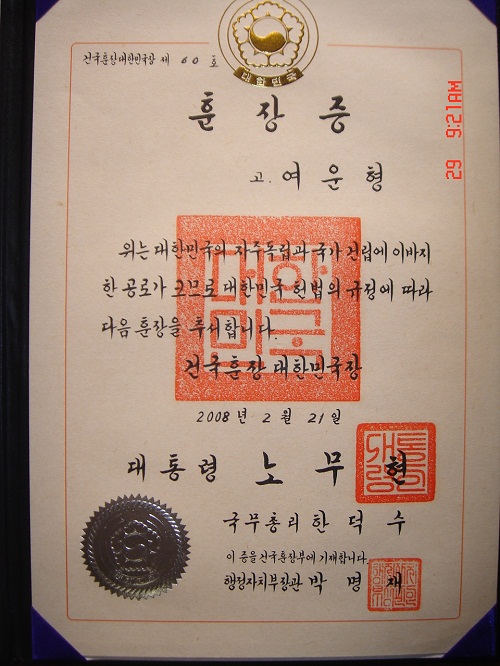 대한민국
건국훈장대한민국장 제 60 호
훈장증
고. 여운형
위는 대한민국의 자주독립과 국가 건립에 이바지
한 공로가 크므로 대한민국 헌법의 규정에 따라
다음 훈장을 추서합니다.
대한
민국
건국훈장 대한민국장
2008년 2월 21일
대통령 노무현
국무총리 한덕수
이 증을 건국훈장부에 기재합니다.
행정자치부장관 박명재
29 9:21AM